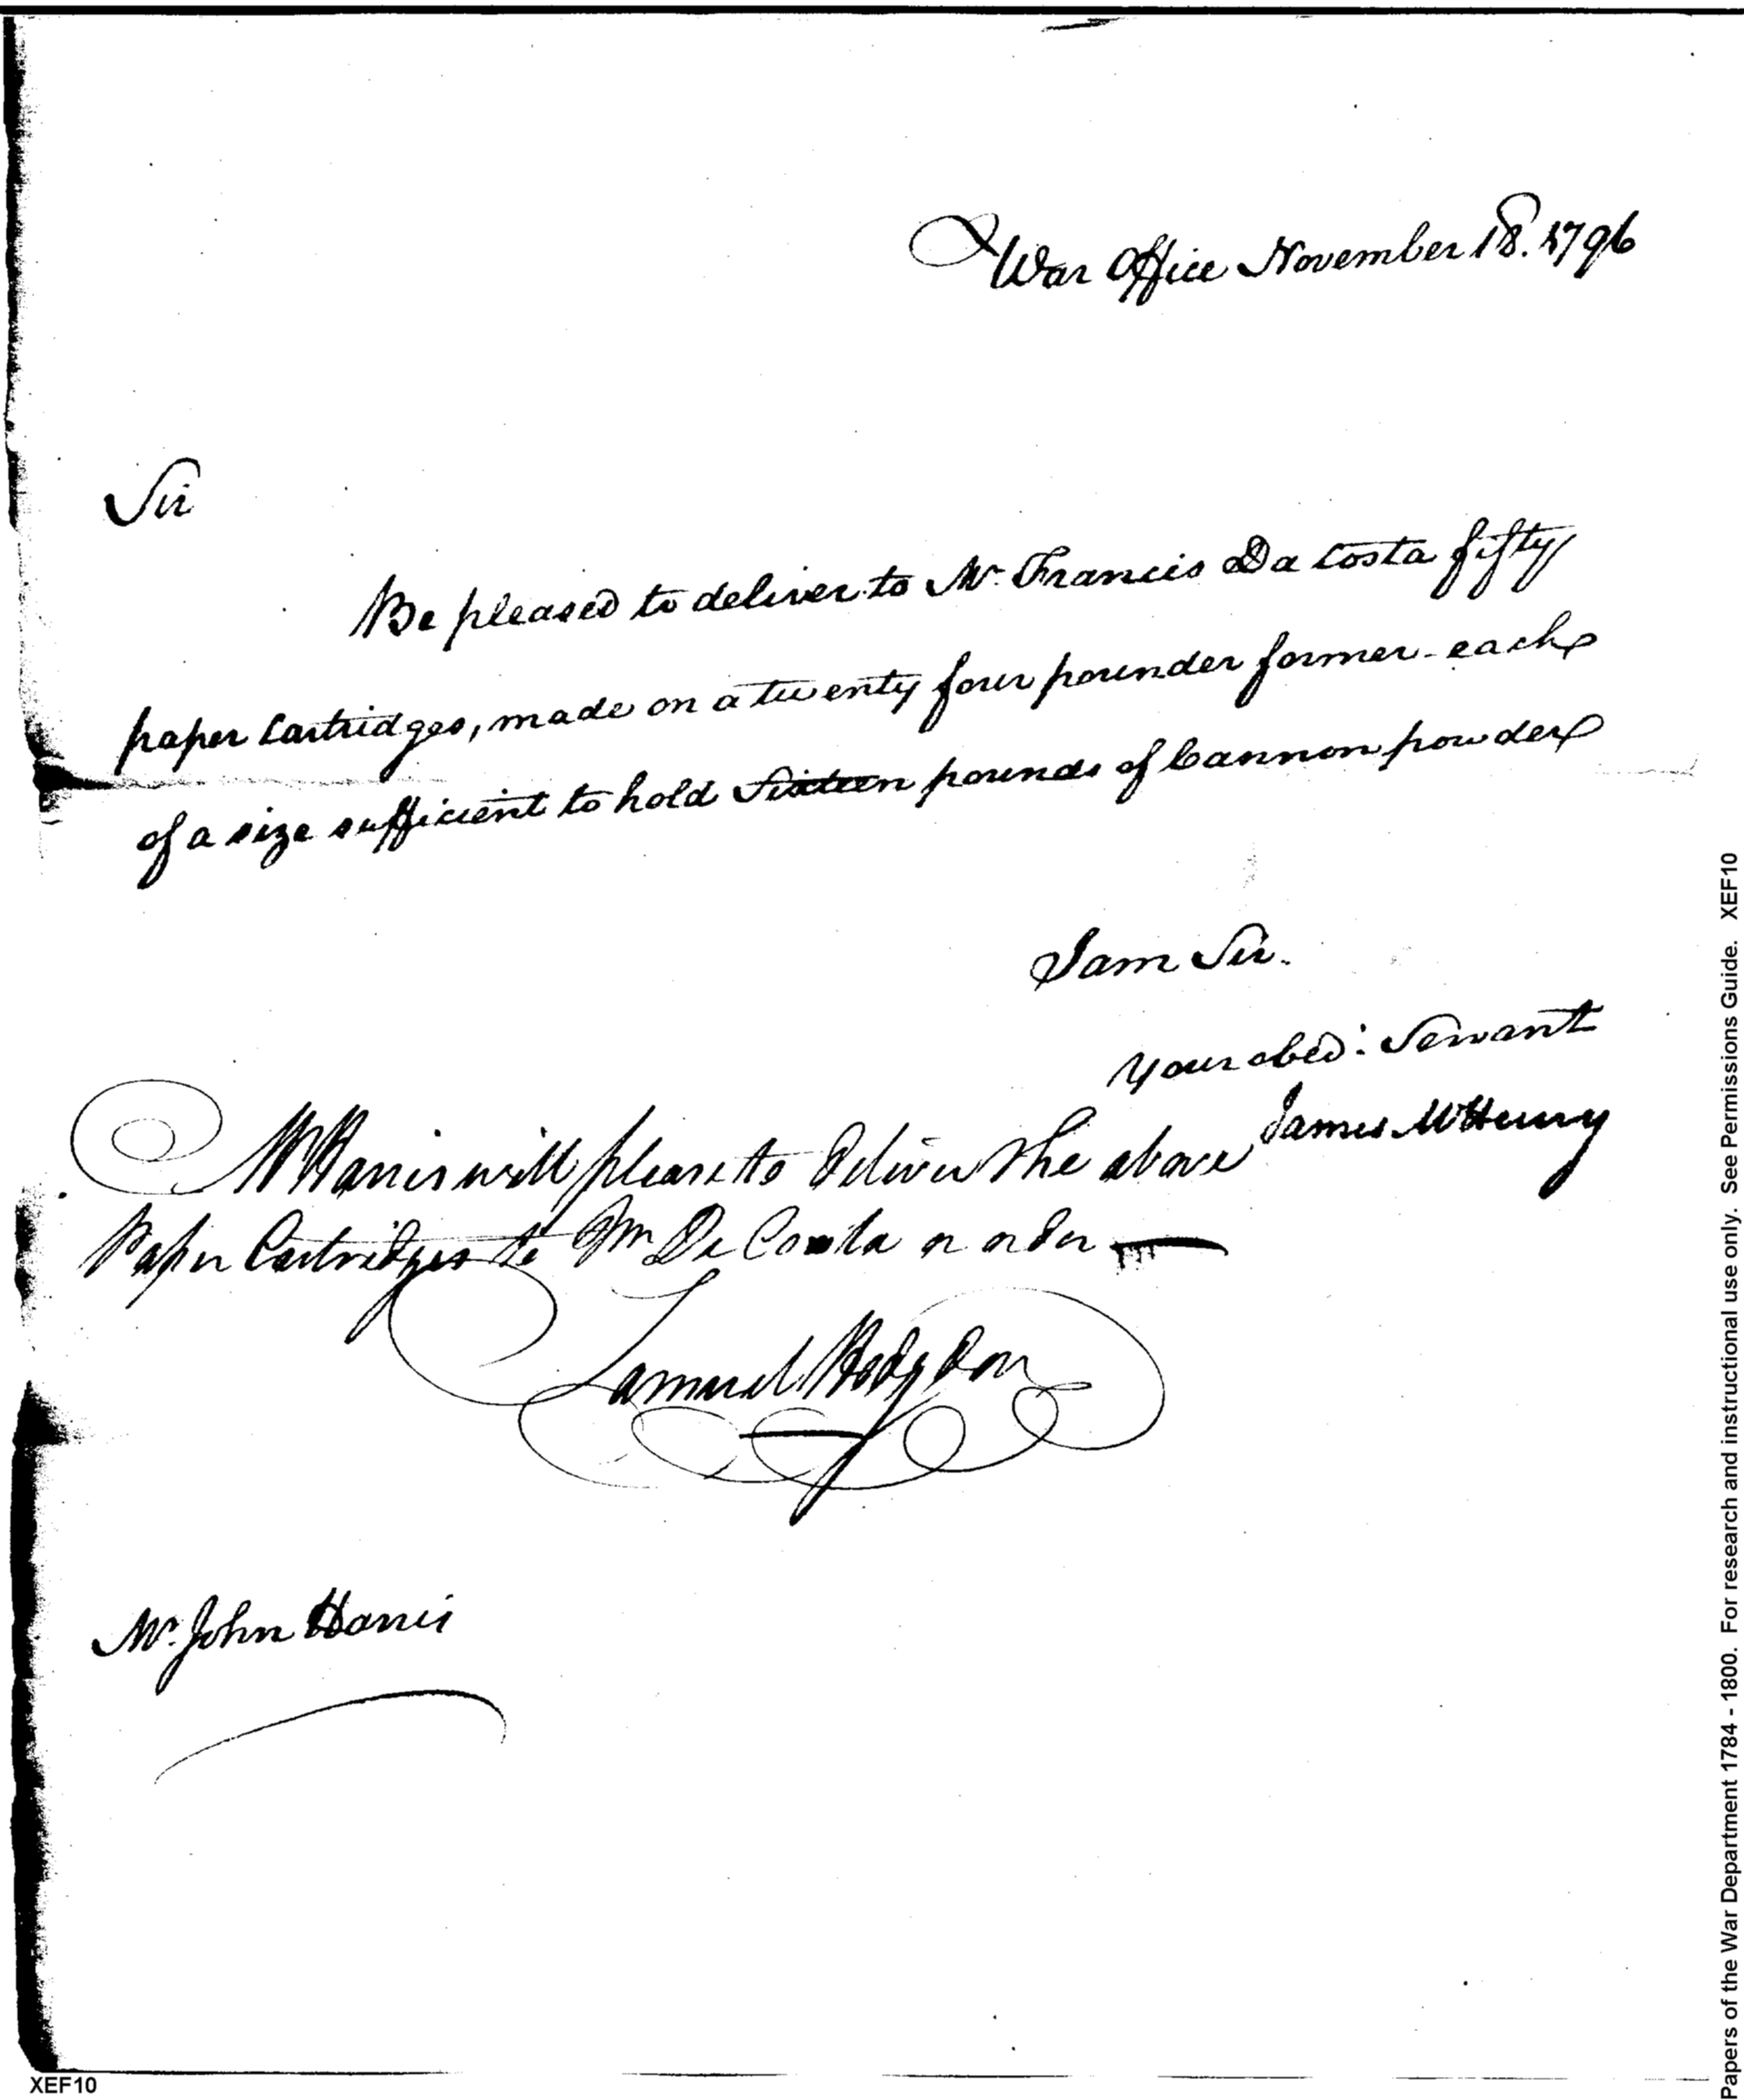 War Office November 18. 1796
Sir
Be pleased to deliver to Mr. Francis Da Costa fifty
paper Cartridges, made on a twenty four pounder former - each
of a size sufficient to hold Sixteen pounds of Cannon powder
I am Sir.
Your obed: Servant
James McHenry
Mr Harris will please to deliver the above
Paper Cartridges to Mr De Costa or order
Samuel Hodgdon
Mr. John Harris
XEF10
Papers of the War Department 1784 - 1800. For research and instructional use only. See Permissions Guide. XEF10